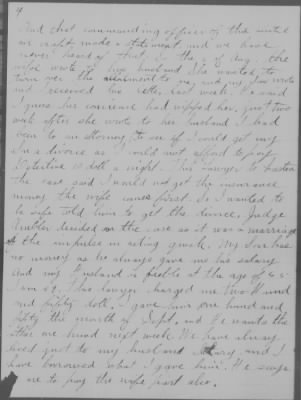 4
And that commanding officer of the unit
or capt. made a statement and we have
never heard of that. In the of Aug. she
wife wrote to my husband she wanted to
turn over the allotment to me, and my Son wrote
and received his letter last week. and said
I guess her concience had nipped her, just two
week after she wrote to her husband I had
been to an attorney to see if I could get my
Son a divorce as I could not afford to pay
Detective is doll a night. This lawyer is
the case said I would not get the insurance
money the wife comes first. So I wanted to
be safe told him to get the divorce. Judge
decided on the case as it was a marriage
of the impulse in acting quick. My Son has
no money as he always gave me his salary
and my husband is feeble at the age of 65
I am 59. This lawyer charged me two Hund
and fifty doll. I gave him one hund and
fifty the month of Sept. and He wants the
other one hund next week. We have always
lived just to my husband salary and I
have borrowed what I gave him. He says
me to pay the wife part also.